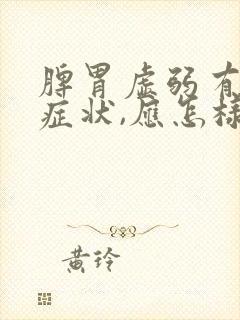 脾胃虚弱有
症状,应怎样
黄玲